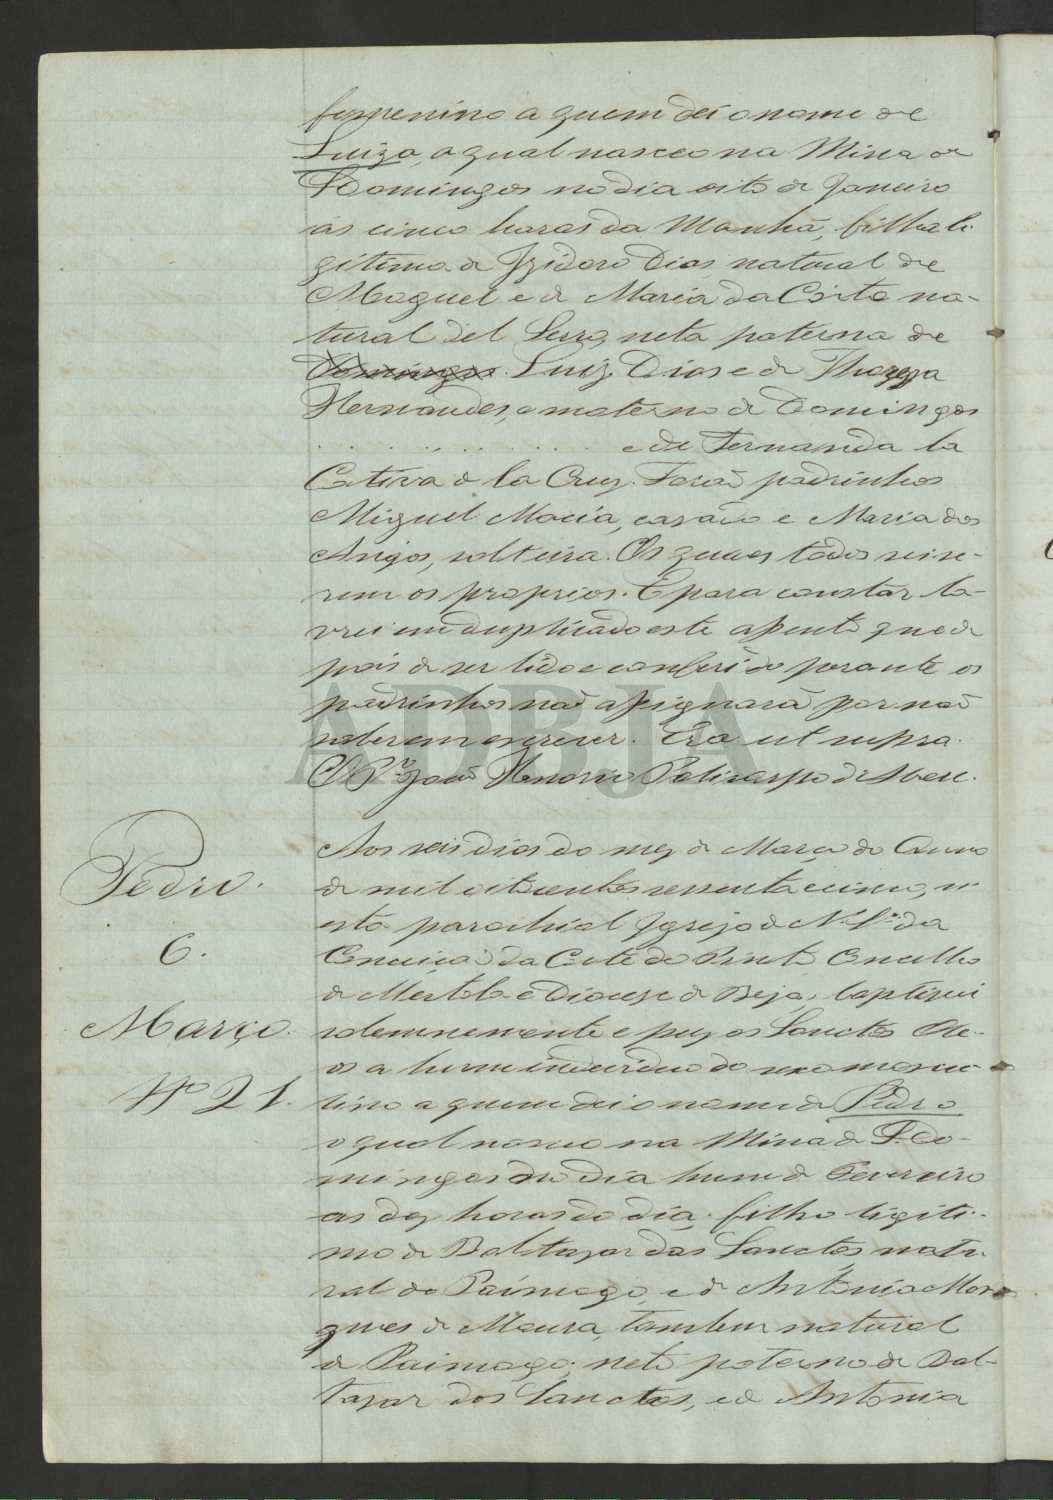 femenino a quem dei o nome de
Luiza, a qual nasceo na Mina de
S. Domingos no dia oito de Janeiro
ás cinco horas da Manhã, filha le-
gitima de Izidoro Dias, natural de
Moguel e de Maria da Costa na-
tural del Serro, neta paterna de
Domingos Luiz Dias e de Thereza
Hernandes, e materno de Domingos
. . . . . . . . . . . . . e de Fernanda la
Cativa de la Cruz. Forão padrinhos
Miguel Macia, casado e Maria dos
Anjos, solteira. Os quaes todos sei se-
rem os proprios. E para constar la-
vrei em duplicado este assento que de
pois de ser lido e conferido perante os
padrinhos não assignarão por não
saberem escrever. Era ut supra.
O Pr. João Honorio Policarpo d'Abreu.
Pedro.
6.
Março.
Nº 21.
Aos seis dias do mez de Março do Anno
de mil oitocentos sessenta e cinco, n'
esta parochial Igreja de N. Sª da
Conceição da Corte do Pinto Concelho
de Mertola e Diocese de Beja, baptizei
solemnemente e puz os Sanctos Ole-
os a hum individuo do sexo mascu-
lino a quem dei o nome de Pedro
o qual nasceo na Mina de S. Do-
mingos no dia hum de Fevereiro
as dez horas do dia, filho legiti-
mo de Baltazar dos Sanctos, natu-
ral do Paimogo, e de Antonia Mar-
ques de Moura, tambem natural
de Paimogo; neto paterno de Bal-
tazar dos Sanctos, e de Antonia
ADBJA